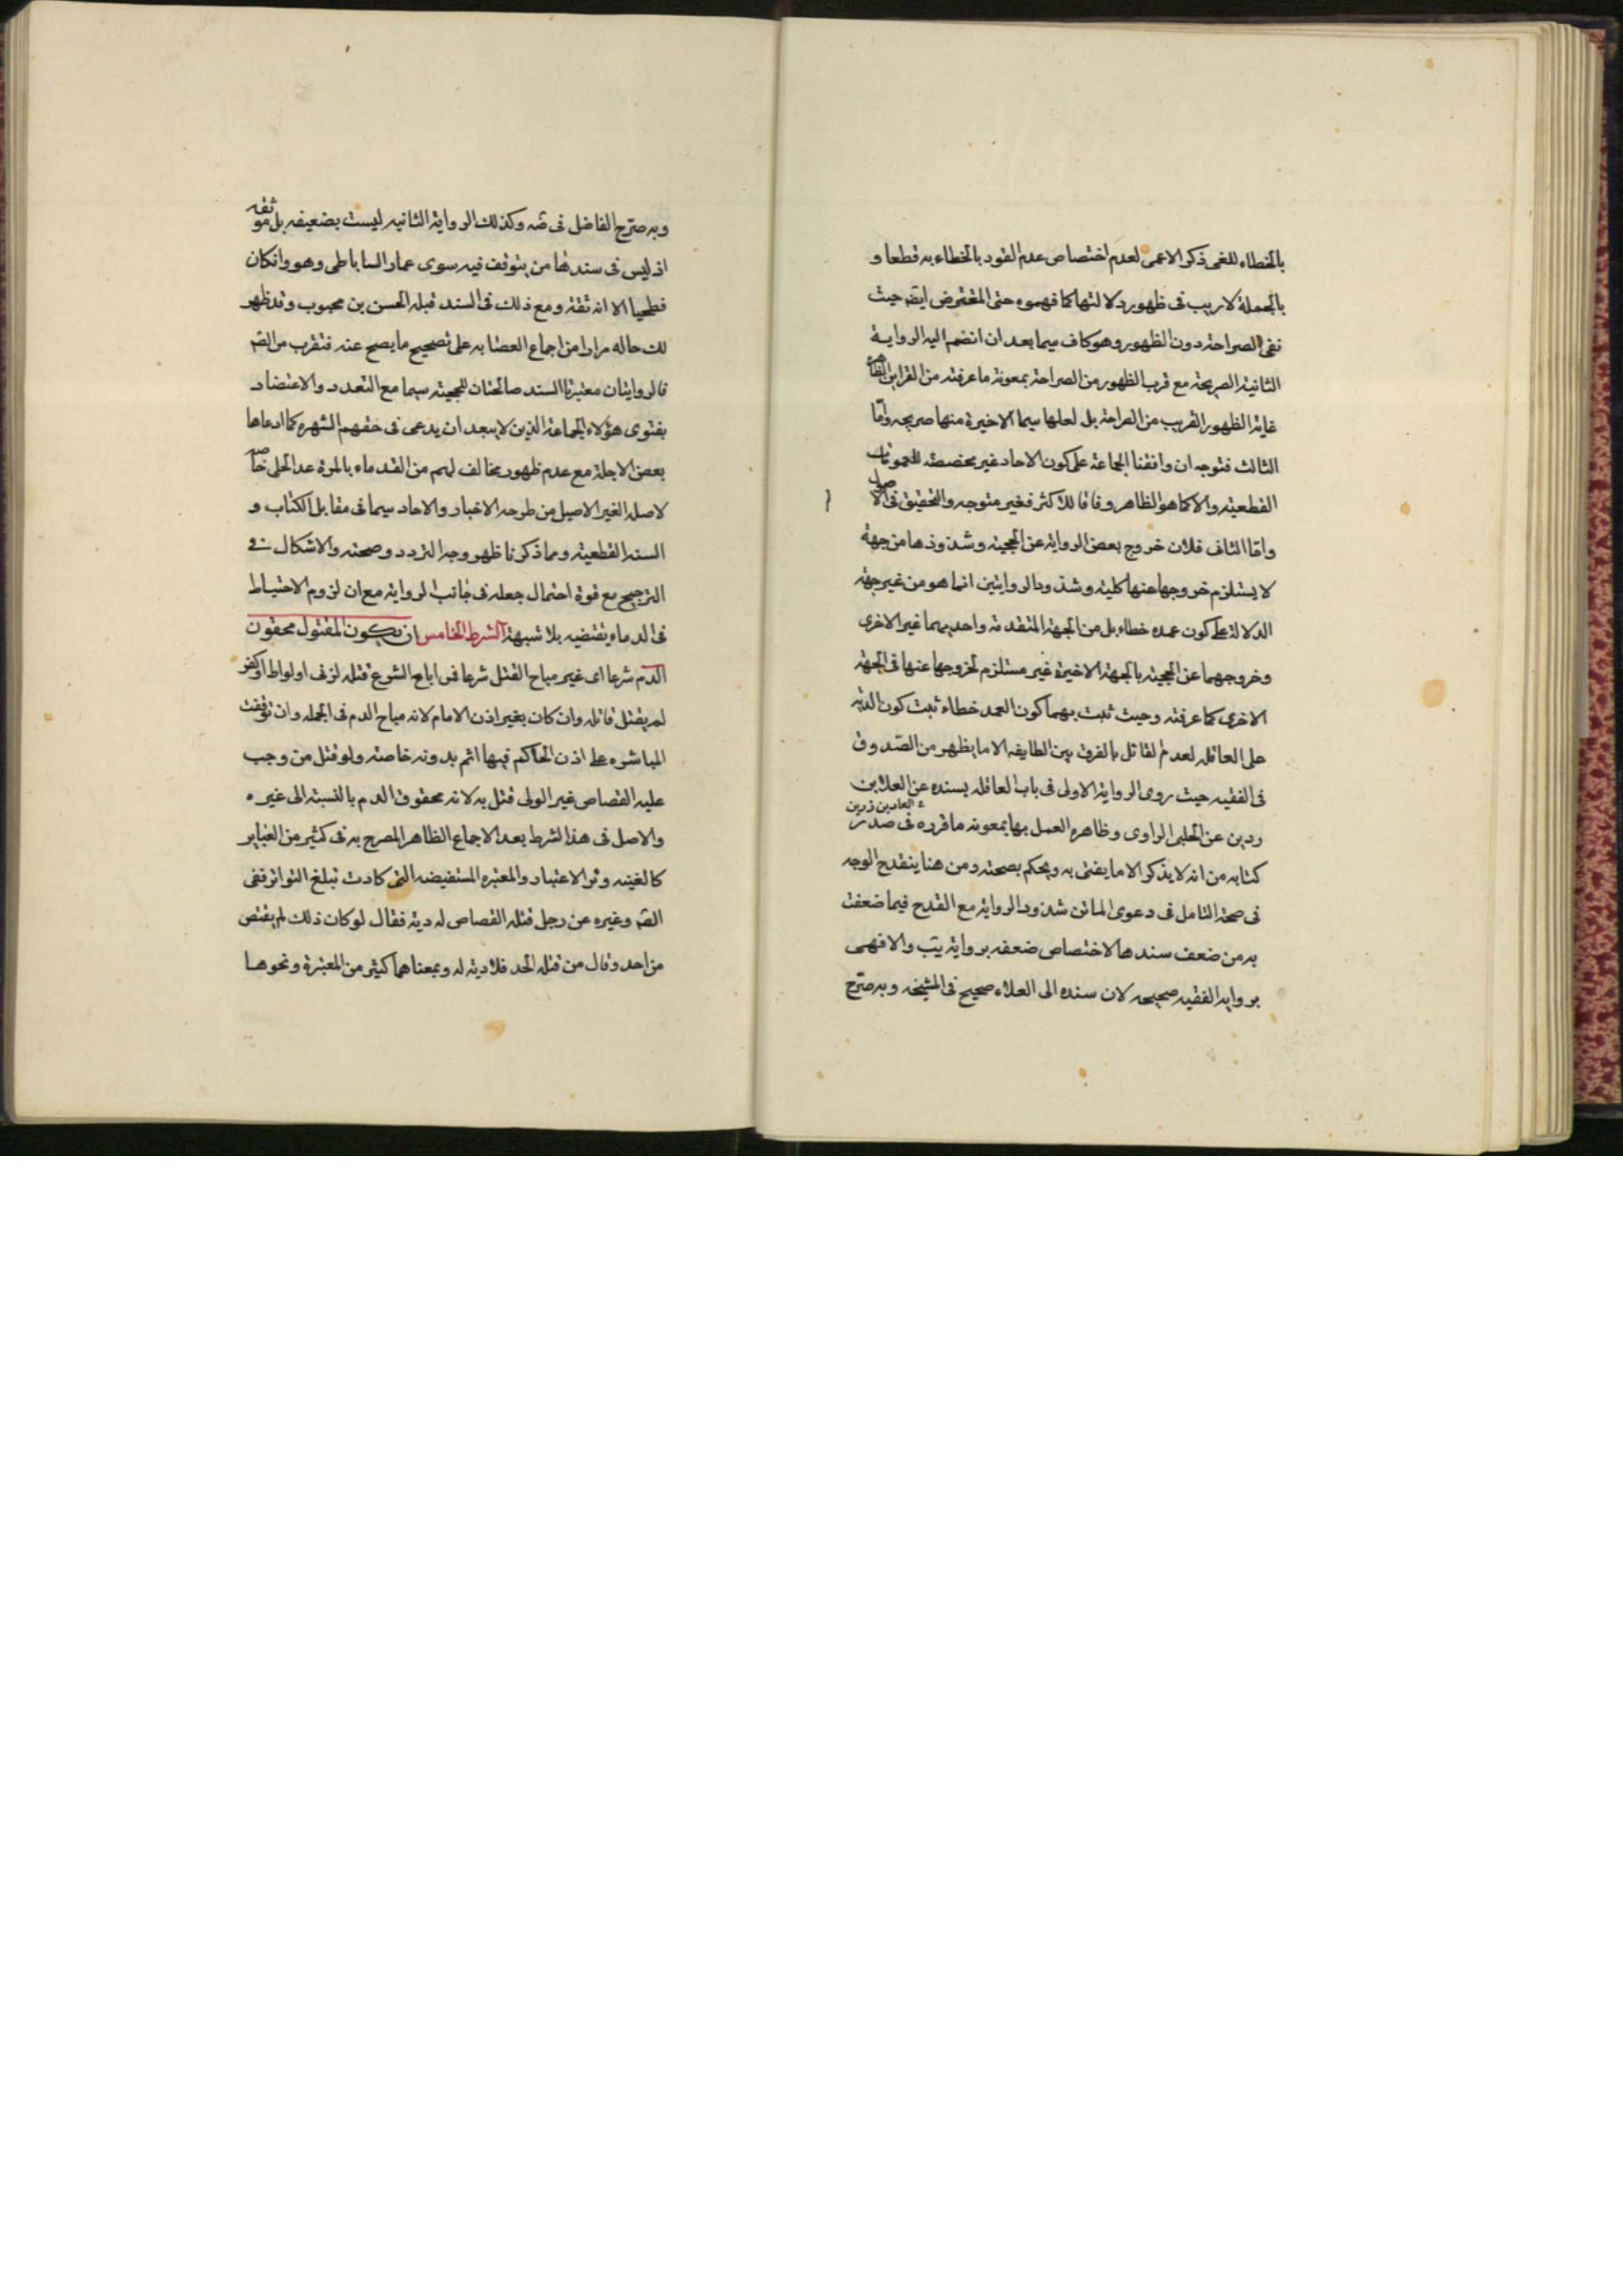 بالخطاء للغى ذكر الاعمى لعدم اختصاص عدم القود بالخطاء به قطعا و
بالجملة لا ريب فى ظهور دلالتها كما فهموه حتى المعترض ايضا حيث
نفى الصراحة دون الظهور وهو كاف سيما بعد ان انضم اليه الرواية
الثانية الصريحة مع قرب الظهور من الصراحة بمعونة ما عرفته من القراين الظاهرة
غاية الظهور القريب من الصراحة بل لعلها سيما الاخيرة منها صريحه وامّا
الثالث فتوجه ان وافقنا الجماعة على كون الاحاد غير مخصصة للعمومات
القطعية والا كما هو الظاهر وفاقا للاكثر فغير متوجه والتحقيق فى الاصول
وامّا الثانى فلان خروج بعض الرواية عن الحجية وشذوذها من جهة
لا يستلزم خروجها عنها كلية وشذوذ الروايتين انما هو من غير جهة
الدلالة على كون عمده خطاء بل من الجهة المتقدمة واحديهما غير الاخرى
وخروجهما عن الحجية بالجهة الاخيرة غير مستلزم لخروجها عنها فى الجهة
الاخرى كما عرفته وحيث ثبت بهما كون العمد خطاء ثبت كون الدية
على العاقله لعدم القائل بالفرق بين الطايفه الا ما يظهر من الصّدوق
فى الفقيه حيث روى الرواية الاولى فى باب العاقله بسنده عن العلا بن
العلا بن زرين
ردين عن الحلبى الراوى وظاهره العمل بها بمعونه ما قرره فى صدر
كتابه من انه لا يذكر الا ما يفتى به ويحكم بصحته ومن هنا ينقدح الوجه
فى صحة التامل فى دعوى الماتن شذوذ الرواية مع القدح فيما ضعفت
به من ضعف سندها لاختصاص ضعفه برواية يب والا فهى
برواية الفقيه صحيحه لان سنده الى العلاء صحيح فى المشيخه وبه صرّح
وبه صرّح الفاضل فى ضه وكذلك الرواية الثانيه ليست بضعيفه بل موثقه
اذ ليس فى سندها من يتوقف فيه سوى عمار الساباطى وهو وان كان
فطحيا الا انه ثقة ومع ذلك فى السند قبله الحسن بن محبوب وقد ظهر
لك حاله مرارا من اجماع العصابه على تصحيح ما يصح عنه فتقرب من الصّ
فالروايتان معتبرتا السند صالحتان للحجية سيما مع التعدد والاعتضاد
بفتوى هؤلاء الجماعة الذين لا يبعد ان يدعى فى حقهم الشهره كما ادعاها
بعض الاجلة مع عدم ظهور مخالف لهم من القدماء بالمرة عدا الحلى خاصه
لاصله الغير الاصيل من طرحه الاخبار والاحاد سيما فى مقابل الكتاب و
السنه القطعية ومما ذكرنا ظهر وجه التردد وصحته والاشكال فى
الترجيح مع قوة احتمال جعله فى جانب الرواية مع ان لزوم الاحتياط
فى الدماء يقتضيه بلا شبهة الشرط الخامس ان يكون المقتول محقون
الدم شرعا اى غير مباح القتل شرعا فمن اباح الشرع قتله لزنى او لواط او كفر
لم يقتل قاتله وان كان بغير اذن الامام لانه مباح الدم فى الجمله وان توقفت
المباشره على اذن الحاكم فيها اثم بدونه خاصة ولو قتل من وجب
عليه القصاص غير الولى قتل به لانه محقوق الدم بالنسبة الى غيره
والاصل فى هذا الشرط بعد الاجماع الظاهر المصرح به فى كثير من العباير
كالغنيه وثر الاعتبار والمعتبره المستفيضه التى كادت تبلغ التواتر ففى
الصّ وغيره عن رجل قتله القصاص له دية فقال لو كان ذلك لم يقتص
من احد وقال من قتله الحد فلا دية له وبمعناهما كثير من المعتبرة ونحوها